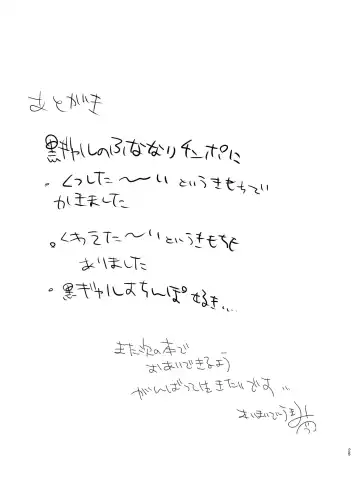 あとがき
黒ギャルのふたなりチンポに
・くっした〜〜いというきもちで
かきました
。くわえた〜〜いというきもちも
ありました
・黒ギャルはちんぽ
また次の本で
おあいできるよう
がんばって生きたいです